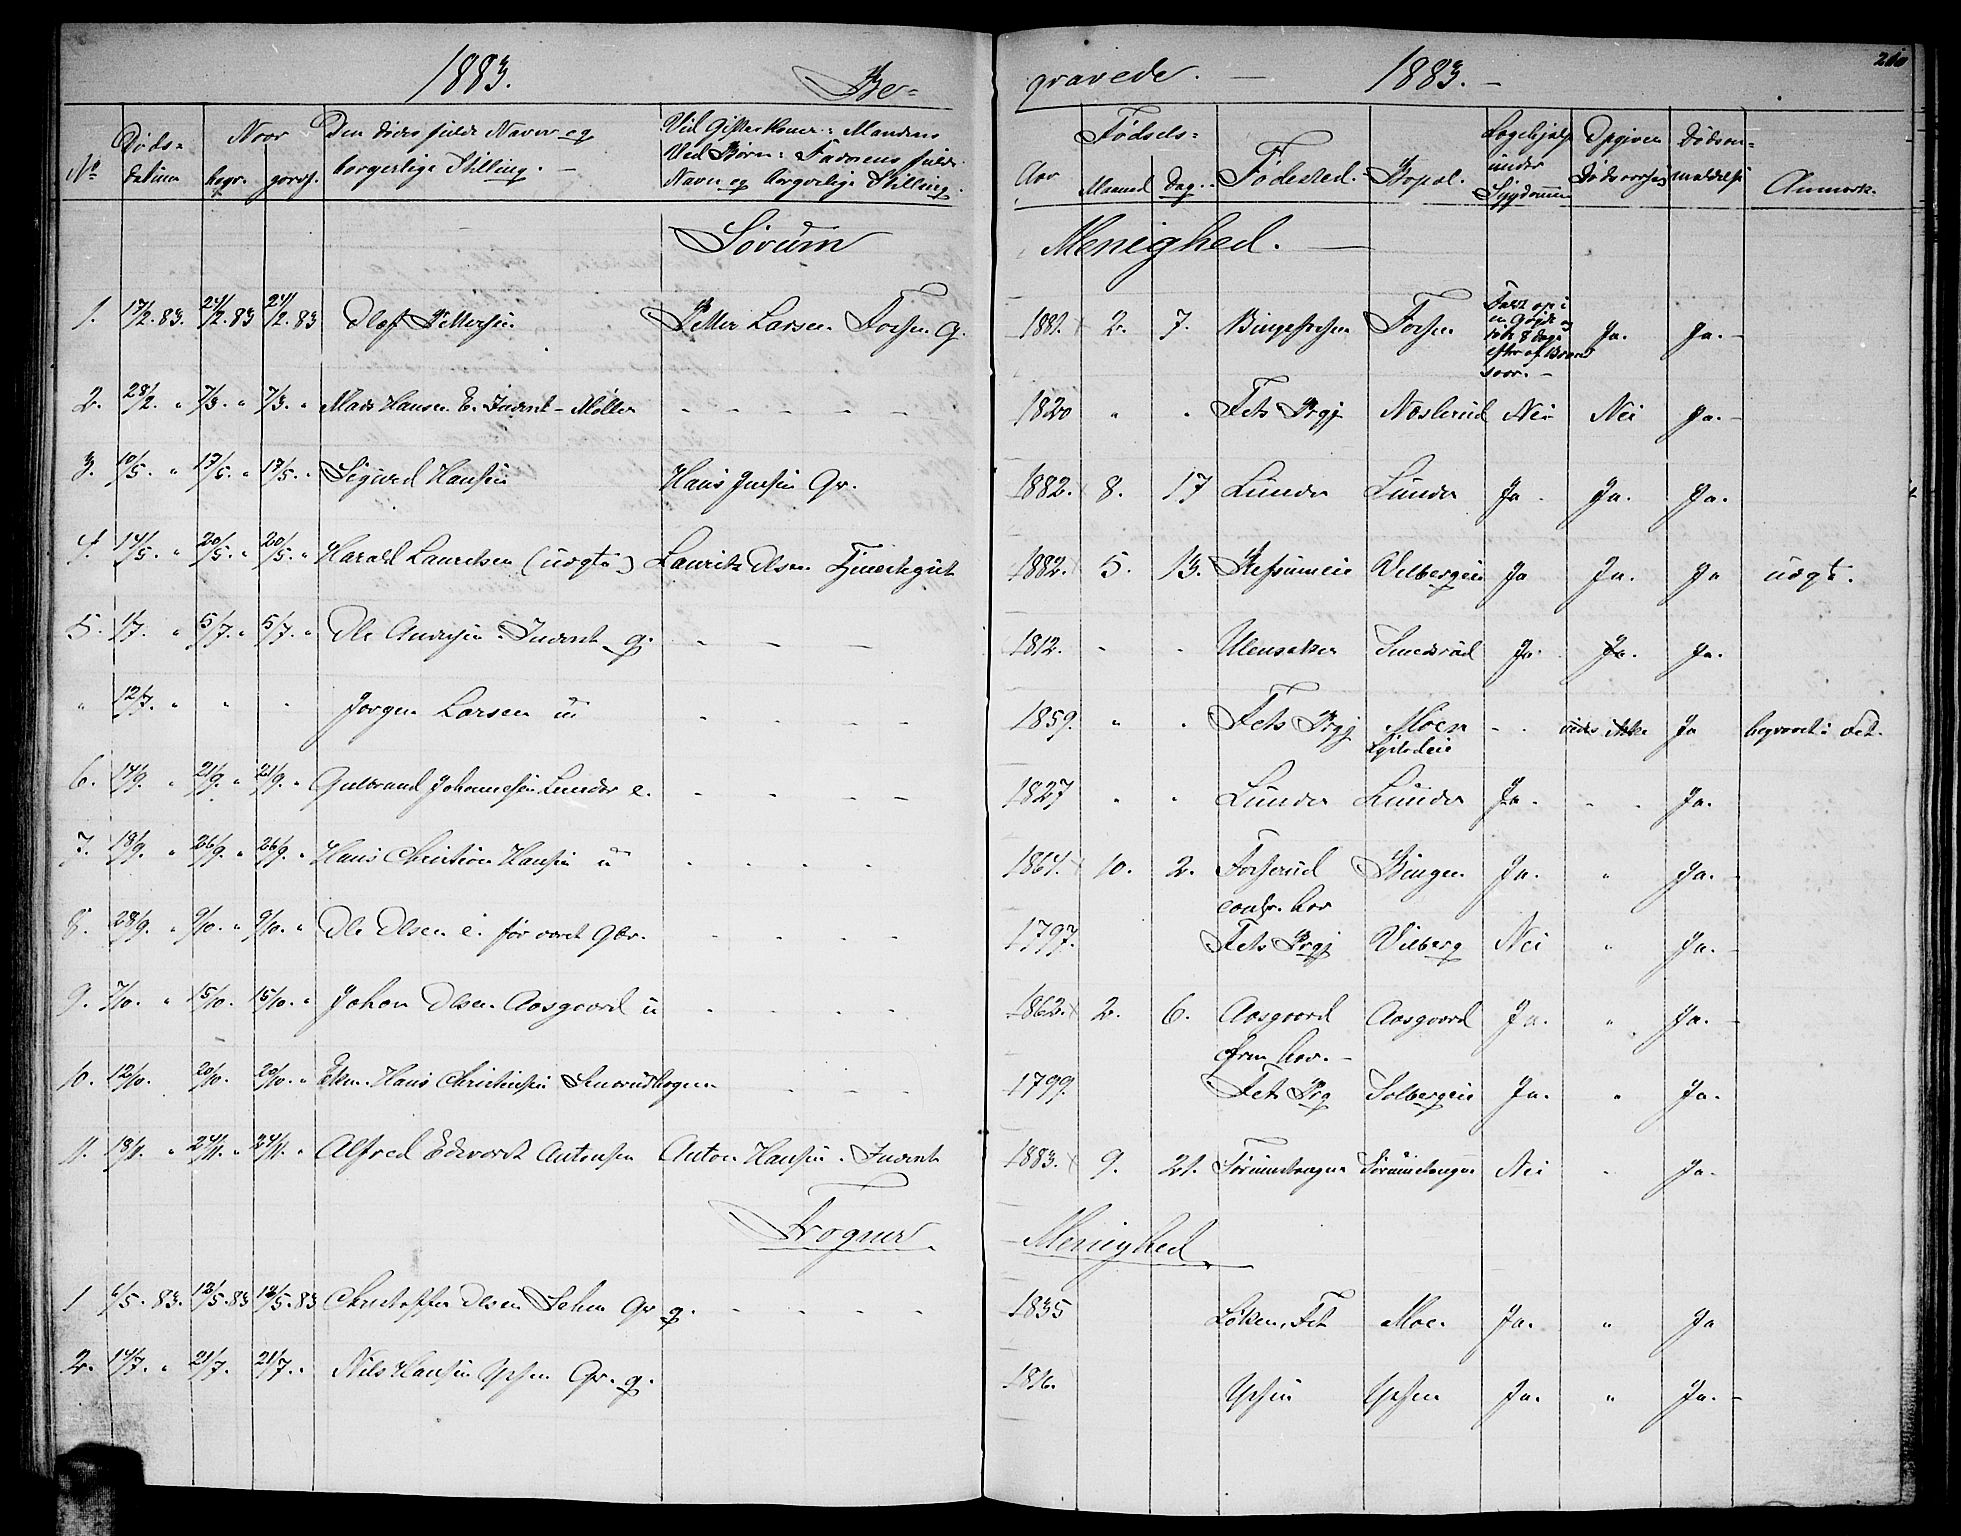 1883. Be- gravede. 1883. 210
No Døds- datum Naar begr. Den dødes fulde Navn og borgerlige Stilling. Ved Gifte Koner: Mandens Ved Børn: Faderens fulde Navn og borgerlige Stilling. Aar Fødsels- Maaned Dag. Fødested. Bopæl. Lægehjælp under Sygdommen Opgiven Dødsaarsag Dødsan- meldelse Anmærk.
Sørum Menighed.
1. 17/2. 83. 24/2. 83 24/2. 83 Olaf Pettersen Petter Larsen Fossen 1881. 2. 7. Bingefossen Fossen Ja. Ja.
2. 28/2. " 7/3. " 7/3. " Mads Hansen E. Inderst - Møller 1820 " " Fets Prgj Næslerud Nei Nei Ja.
3. 10/5. " 17/5. " 17/5. " Sigvard Hansen Hans Jensen Gr. 1882. 8. 17 Lunder Lunder Ja. Ja. Ja.
4. 14/5. " 20/5. " 20/5. " Harald Lauritsen (uægte) Lauritz Olsen 1882. 5. 13. Refsumeie Vilbergeie Ja Ja. Ja uægte.
5. 1/7. " 5/7. " 5/7. " Ole Andersen Inderst g. 1812. Ullensaker Smedsrud Ja. Ja. Ja.
" 12/7. " " " Jørgen Larsen u 1859. " " Fets Prgj Moen vides ikke Ja begravet i Fet.
6. 14/9. " 21/9. " 21/9. " Gulbrand Johannesen Lunder e. 1827 " " Lunder Lunder Ja. Ja.
7. 18/9. " 26/9. " 26/9. " Hans Christian Hansen u 1864. 10. 2. Fosserud Bingen Ja. " Ja.
8. 28/9. " 9/10. " 9/10. " Ole Olsen e. før været Gbr. 1797. Fets Prgj Vilberg Nei " Ja.
9. 7/10. " 15/10. 15/10. " Johan Olsen Aasgaard u 1862. 2. 6. Aasgaard Aasgaard Ja. " Ja.
10. 12/10. 20/10. 20/10. " Ekm. Hans Christensen 1799. Fets Prg Solbergeie Ja. " Ja.
11. 18/11. " 24/11. " 24/11. " Alfred Edvard Antonsen Anton Hansen. Inderst 1883. 9. 21. Sørumshagen Sørumshagen Nei Ja.
Frogner Menighed
1 6/5. 83. 12/5. 83 12/5. 83 Christoffer Olsen Gr g. 1835 Løken, Fet Moe. Ja. " Ja
2. 14/7. " 21/7. 21/7. " Nils Hansen Gr. g. 1816. Ja. " Ja.